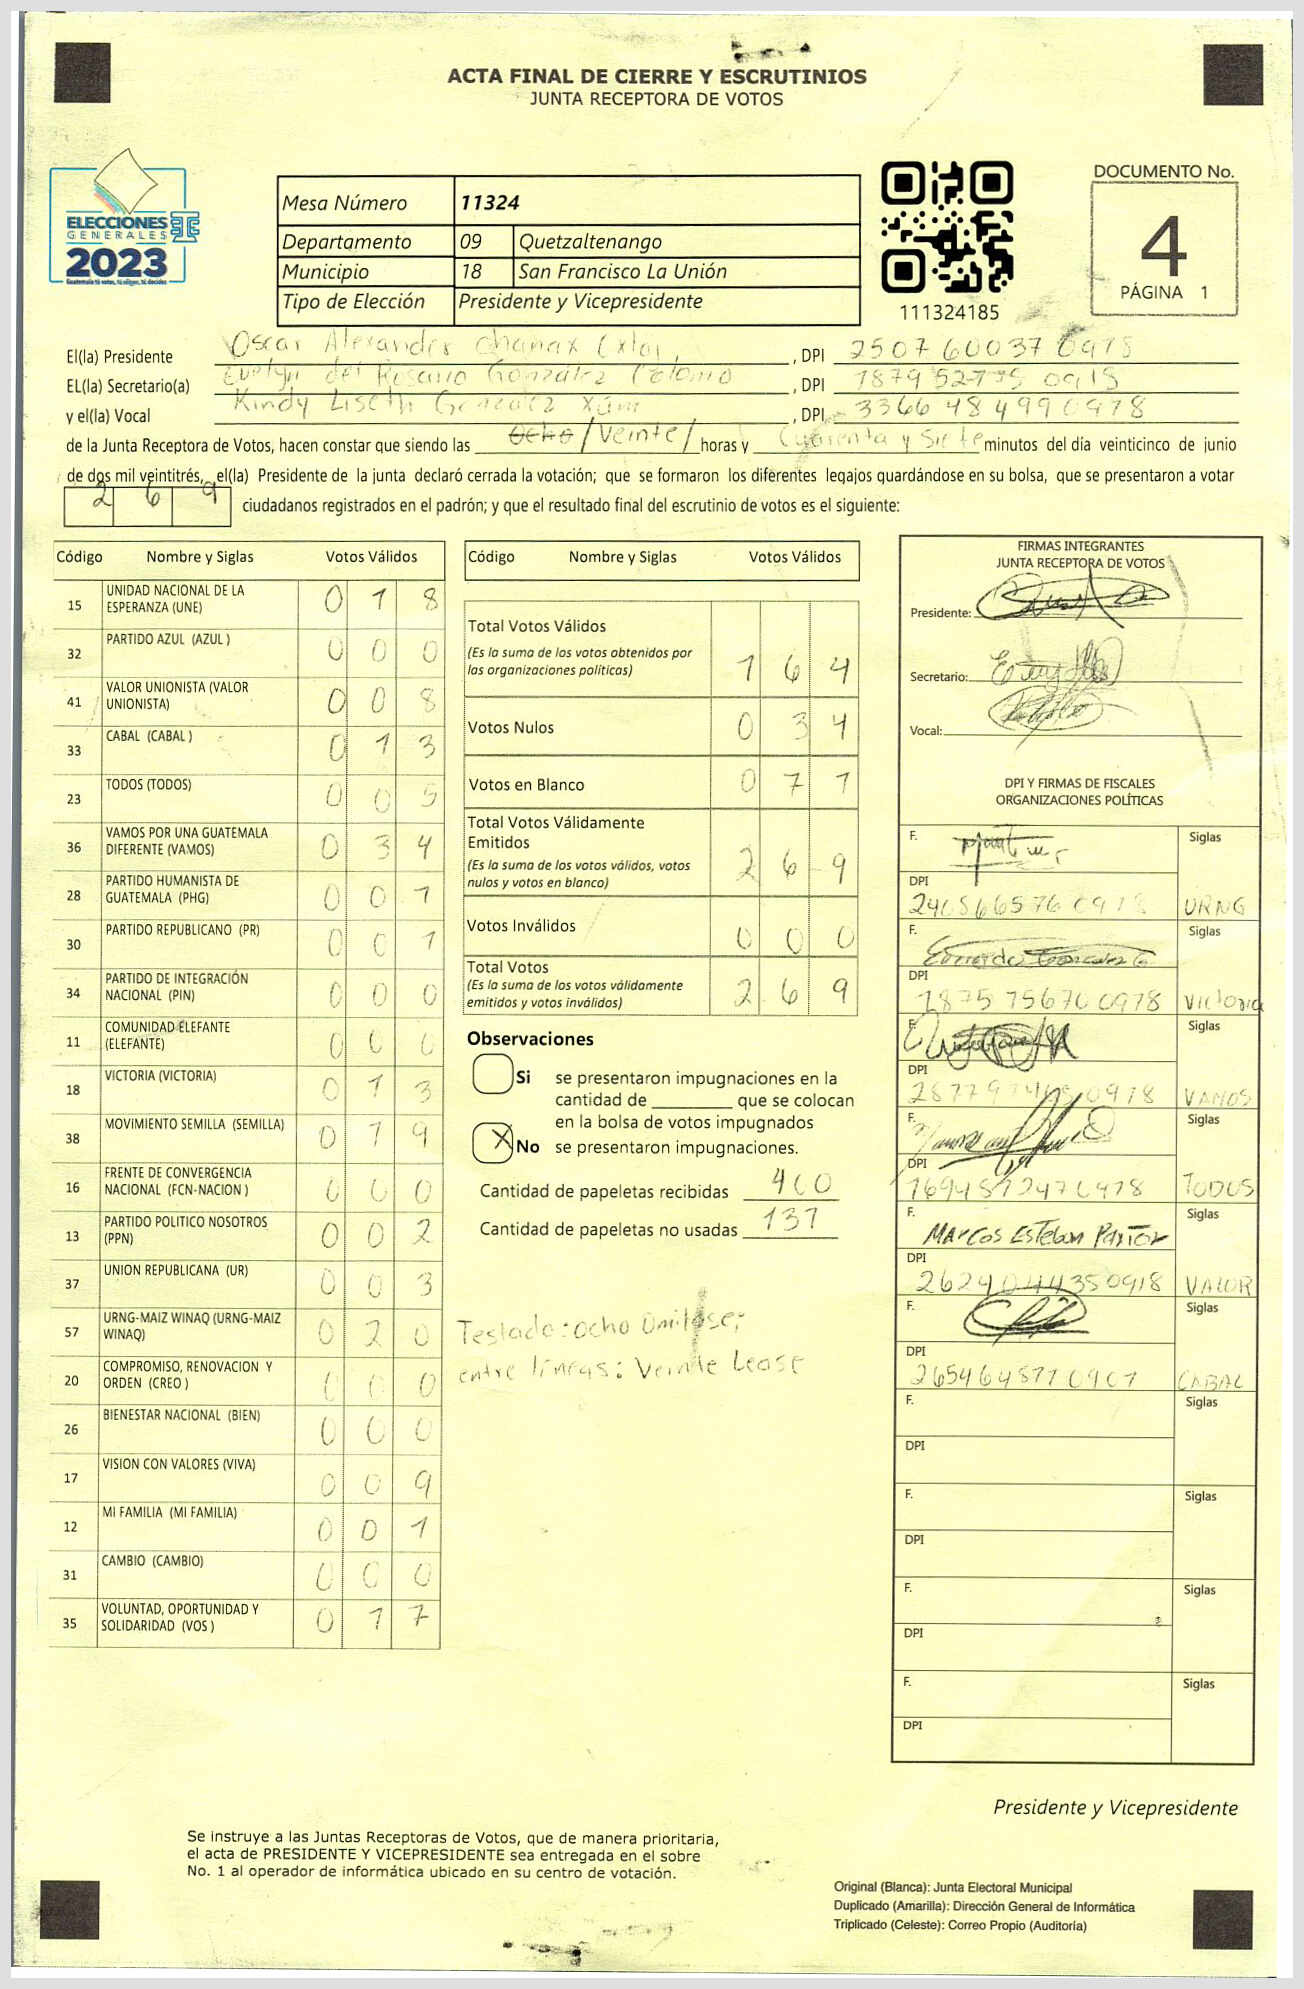 ACTA FINAL DE CIERRE Y ESCRUTINIOS
JUNTA RECEPTORA DE VOTOS
ELECCIONES
GENERALES
2023
Guatemala tú votas, tú eliges, tú decides
Mesa Número 11324
Departamento 09 Quetzaltenango
Municipio 18 San Francisco La Unión
Tipo de Elección Presidente y Vicepresidente
111324185
DOCUMENTO No.
4
PÁGINA 1
El(la) Presidente Oscar Alexander Chanax , DPI 2507 60037 0918
EL(la) Secretario(a) Evelyn del Rosario González Colomo , DPI 0915
y el(la) Vocal Kindy Liseth González Xúm , DPI 3366 48499 0978
de la Junta Receptora de Votos, hacen constar que siendo las Ocho /Veinte/ horas y Cuarenta y Siete minutos del día veinticinco de junio
de dos mil veintitrés, el(la) Presidente de la junta declaró cerrada la votación; que se formaron los diferentes legajos guardándose en su bolsa, que se presentaron a votar
2 6 9 ciudadanos registrados en el padrón; y que el resultado final del escrutinio de votos es el siguiente:
Código Nombre y Siglas Votos Válidos
15 UNIDAD NACIONAL DE LA ESPERANZA (UNE) 0 1 8
32 PARTIDO AZUL (AZUL ) 0 0 0
41 VALOR UNIONISTA (VALOR UNIONISTA) 0 0 8
33 CABAL (CABAL ) 0 1 3
23 TODOS (TODOS) 0 0 5
36 VAMOS POR UNA GUATEMALA DIFERENTE (VAMOS) 0 3 4
28 PARTIDO HUMANISTA DE GUATEMALA (PHG) 0 0 1
30 PARTIDO REPUBLICANO (PR) 0 0 1
34 PARTIDO DE INTEGRACIÓN NACIONAL (PIN) 0 0 0
11 COMUNIDAD ELEFANTE (ELEFANTE) 0 0 0
18 VICTORIA (VICTORIA) 0 1 3
38 MOVIMIENTO SEMILLA (SEMILLA) 0 1 9
16 FRENTE DE CONVERGENCIA NACIONAL (FCN-NACION ) 0 0 0
13 PARTIDO POLITICO NOSOTROS (PPN) 0 0 2
37 UNION REPUBLICANA (UR) 0 0 3
57 URNG-MAIZ WINAQ (URNG-MAIZ WINAQ) 0 2 0
20 COMPROMISO, RENOVACION Y ORDEN (CREO ) 0 0 0
26 BIENESTAR NACIONAL (BIEN) 0 0 0
17 VISION CON VALORES (VIVA) 0 0 9
12 MI FAMILIA (MI FAMILIA) 0 0 1
31 CAMBIO (CAMBIO) 0 0 0
35 VOLUNTAD, OPORTUNIDAD Y SOLIDARIDAD (VOS ) 0 1 7
Código Nombre y Siglas Votos Válidos
Total Votos Válidos 1 6 4
(Es la suma de los votos obtenidos por
las organizaciones políticas)
Votos Nulos 0 3 4
Votos en Blanco 0 7 1
Total Votos Válidamente
Emitidos 2 6 9
(Es la suma de los votos válidos, votos
nulos y votos en blanco)
Votos Inválidos 0 0 0
Total Votos
(Es la suma de los votos válidamente
emitidos y votos inválidos) 2 6 9
Observaciones
Si se presentaron impugnaciones en la
cantidad de ________ que se colocan
en la bolsa de votos impugnados
X No se presentaron impugnaciones.
Cantidad de papeletas recibidas 400
Cantidad de papeletas no usadas 131
Testado: ocho Omitase;
entre líneas: Veinte Lease
FIRMAS INTEGRANTES
JUNTA RECEPTORA DE VOTOS
Presidente:
Secretario:
Vocal:
DPI Y FIRMAS DE FISCALES
ORGANIZACIONES POLÍTICAS
F. Siglas
DPI
URNG
F. Siglas
DPI
Victoria
F. Siglas
DPI
VAMOS
F. Siglas
DPI
TODOS
F. Marcos Esteban Pastor Siglas
DPI
2624044350918 VALOR
F. Siglas
DPI
CABAL
F. Siglas
DPI
F. Siglas
DPI
F. Siglas
DPI
F. Siglas
DPI
Presidente y Vicepresidente
Se instruye a las Juntas Receptoras de Votos, que de manera prioritaria,
el acta de PRESIDENTE Y VICEPRESIDENTE sea entregada en el sobre
No. 1 al operador de informática ubicado en su centro de votación.
Original (Blanca): Junta Electoral Municipal
Duplicado (Amarilla): Dirección General de Informática
Triplicado (Celeste): Correo Propio (Auditoría)